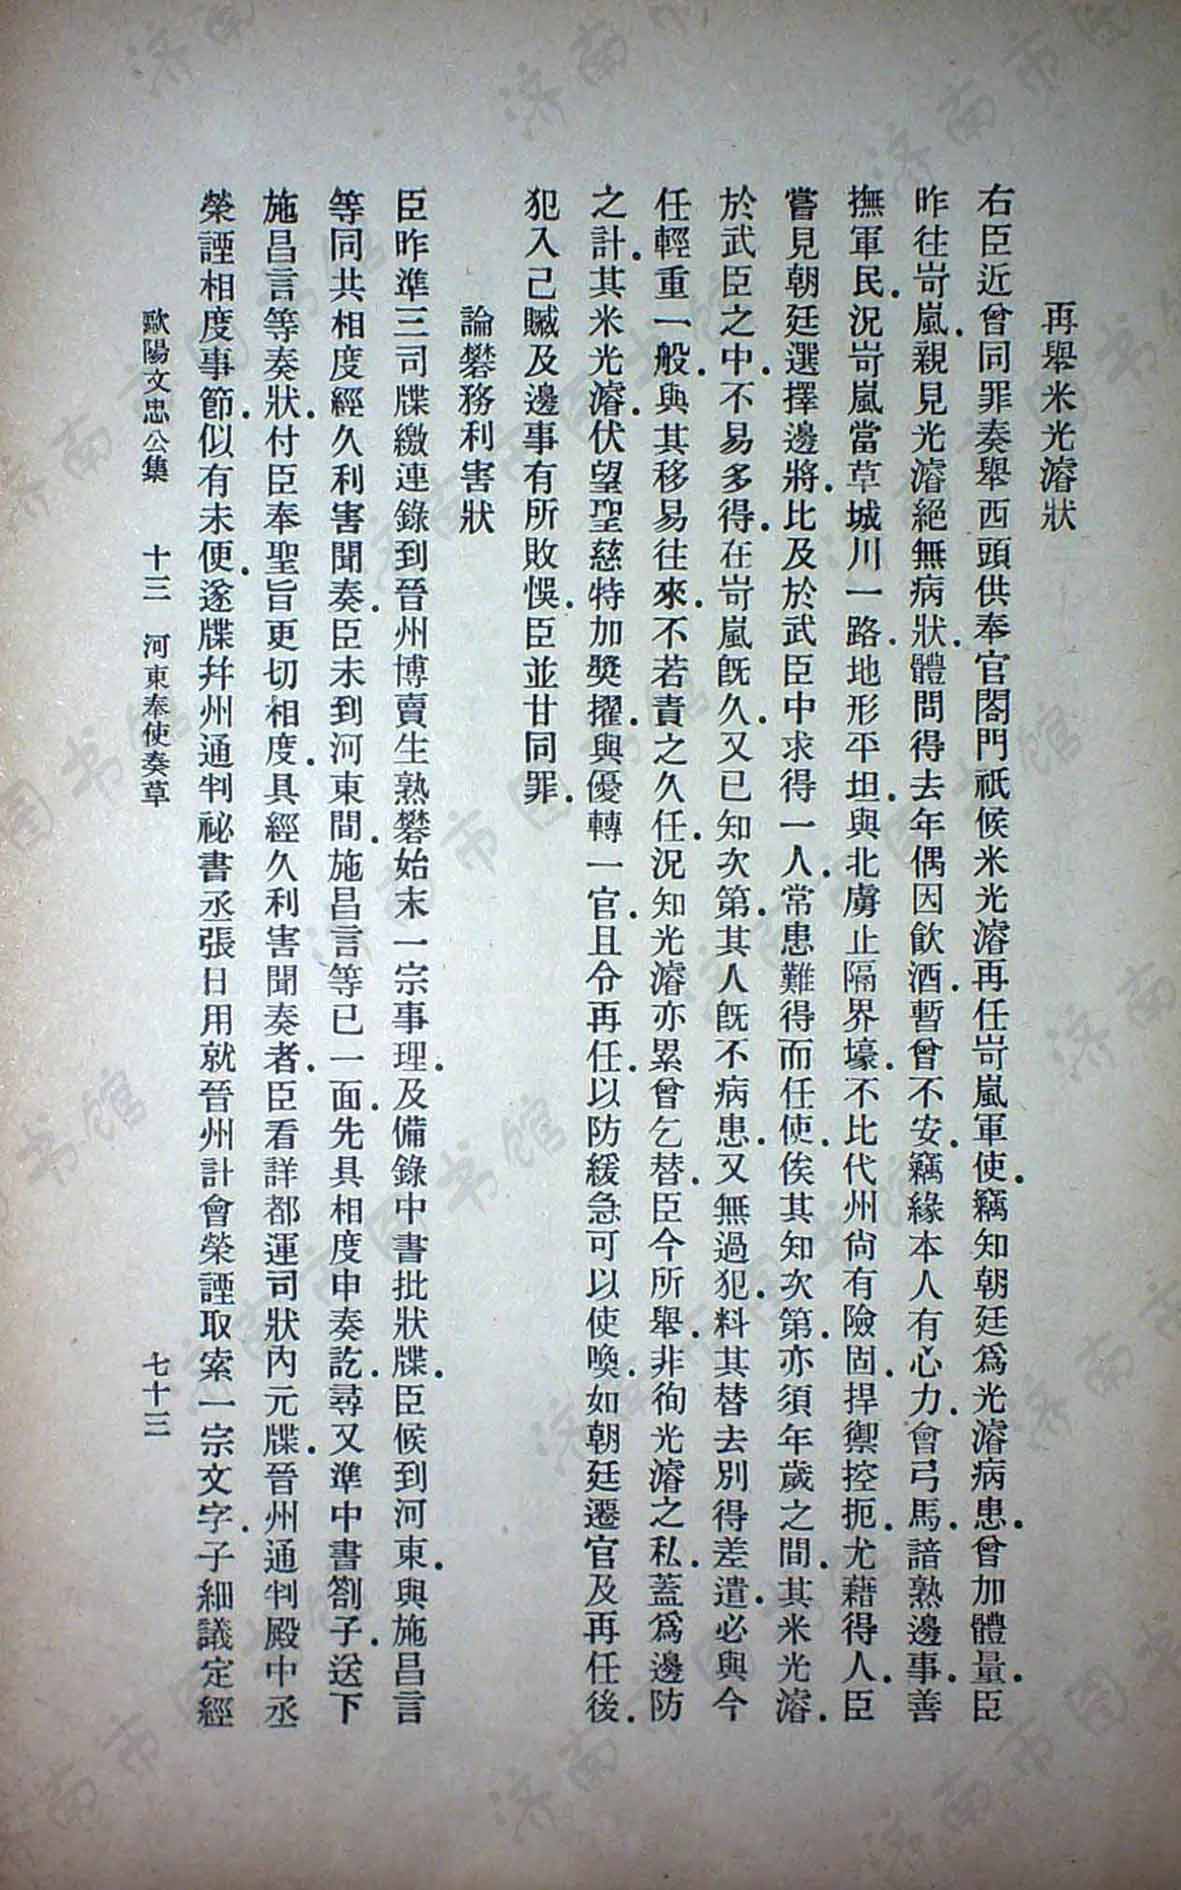 再舉米光濬狀
右臣近曾同罪奏舉西頭供奉官閤門祗候米光濬再任岢嵐軍使.竊知朝廷爲光濬病患.曾加體量.臣
昨往岢嵐.親見光濬絕無病狀.體問得去年偶因飲酒.暫曾不安.竊緣本人有心力.會弓馬.諳熟邊事.善
撫軍民.況岢嵐當草城川一路.地形平坦.與北虜止隔界壕.不比代州尙有險固.捍禦控扼.尤藉得人.臣
嘗見朝廷選擇邊將.比及於武臣中求得一人.常患難得而任使.俟其知次第.亦須年歲之間.其米光濬.
於武臣之中.不易多得.在岢嵐旣久.又已知次第.其人旣不病患.又無過犯.料其替去別得差遣.必與今
任輕重一般.與其移易往來.不若責之久任.況知光濬亦累曾乞替.臣今所舉.非徇光濬之私.蓋爲邊防
之計.其米光濬.伏望聖慈特加奬擢.與優轉一官.且令再任.以防緩急可以使喚.如朝廷遷官及再任後.
犯入己贓及邊事有所敗悞.臣並甘同罪.
論礬務利害狀
臣昨準三司牒繳連錄到晉州博賣生熟礬始末一宗事理.及備錄中書批狀牒.臣候到河東.與施昌言
等同共相度經久利害聞奏.臣未到河東間.施昌言等已一面.先具相度申奏訖.尋又準中書劄子.送下
施昌言等奏狀.付臣奉聖旨更切相度.具經久利害聞奏者.臣看詳都運司狀內元牒.晉州通判殿中丞
榮諲相度事節.似有未便.遂牒幷州通判祕書丞張日用就晉州計會榮諲取索一宗文字.子細議定經
歐陽文忠公集 十三 河東奉使奏草 七十三
济南市图书馆